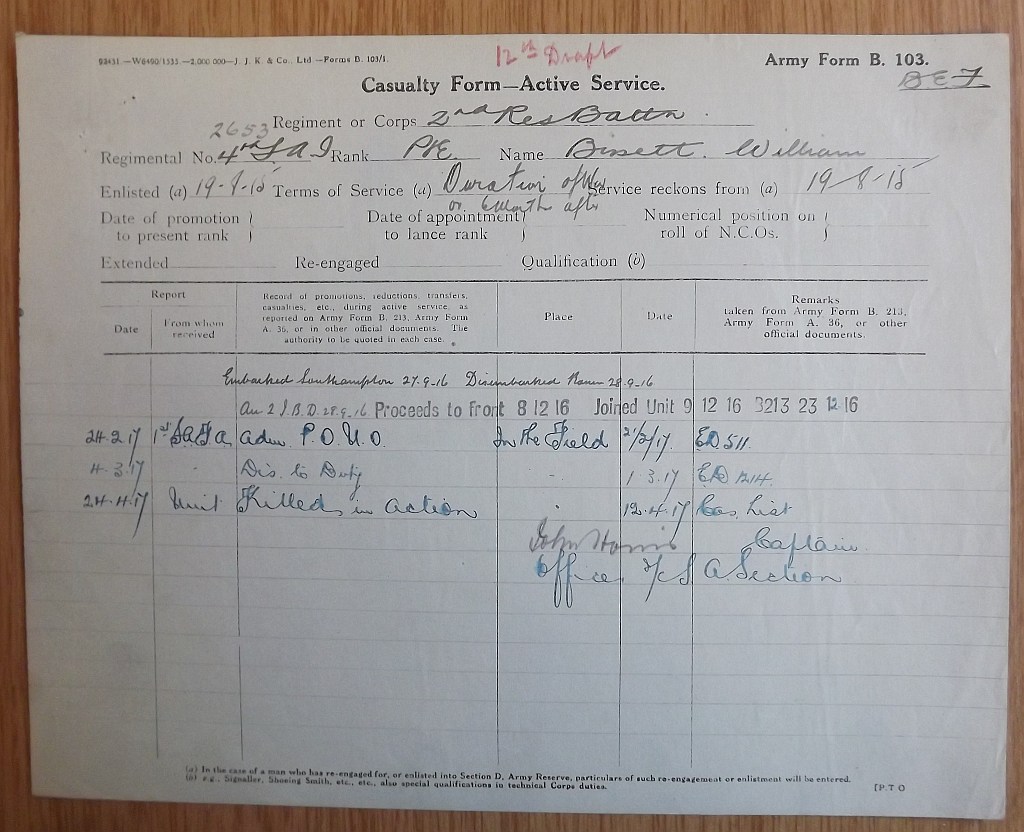 93431.—W6490/1533.—2,000,000—J. J. K. & Co., Ltd.—Forms B. 103/1.
12th Draft
Army Form B. 103.
BEF
Casualty Form—Active Service.
2653 Regiment or Corps 2nd Res Battn
Regimental No. 4th S A I Rank Pte. Name Bissett. William
Enlisted (a) 19-8-15 Terms of Service (a) Duration of War Service reckons from (a) 19-8-15
or 6 Month after
Date of promotion to present rank
Date of appointment to lance rank
Numerical position on roll of N.C.Os.
Extended Re-engaged Qualification (b)
Report
Date
From whom received
Record of promotions, reductions, transfers, casualties, etc., during active service, as reported on Army Form B. 213, Army Form A. 36, or in other official documents. The authority to be quoted in each case.
Place
Date
Remarks taken from Army Form B. 213, Army Form A. 36, or other official documents.
Embarked Southampton 27-9-16 Disembarked Rouen 28-9-16
Arr 2 I.B.D. 28-9-16 Proceeds to front 8 12 16 Joined Unit 9 12 16 B213 23 12 16
24.2.17 1st SAFA adm. P.O.U.O. In the Field 21/2/17 ED 511.
4.3.17 " Dis. to Duty " 1.3.17 ED 1214.
24.4.17 Unit Killed in action " 12.4.17 Cas. List
John Harris Captain
Officer i/c S A Section
(a) In the case of a man who has re-engaged for, or enlisted into Section D, Army Reserve, particulars of such re-engagement or enlistment will be entered.
(b) e.g., Signaller, Shoeing Smith, etc., etc., also special qualifications in technical Corps duties.
[P.T O